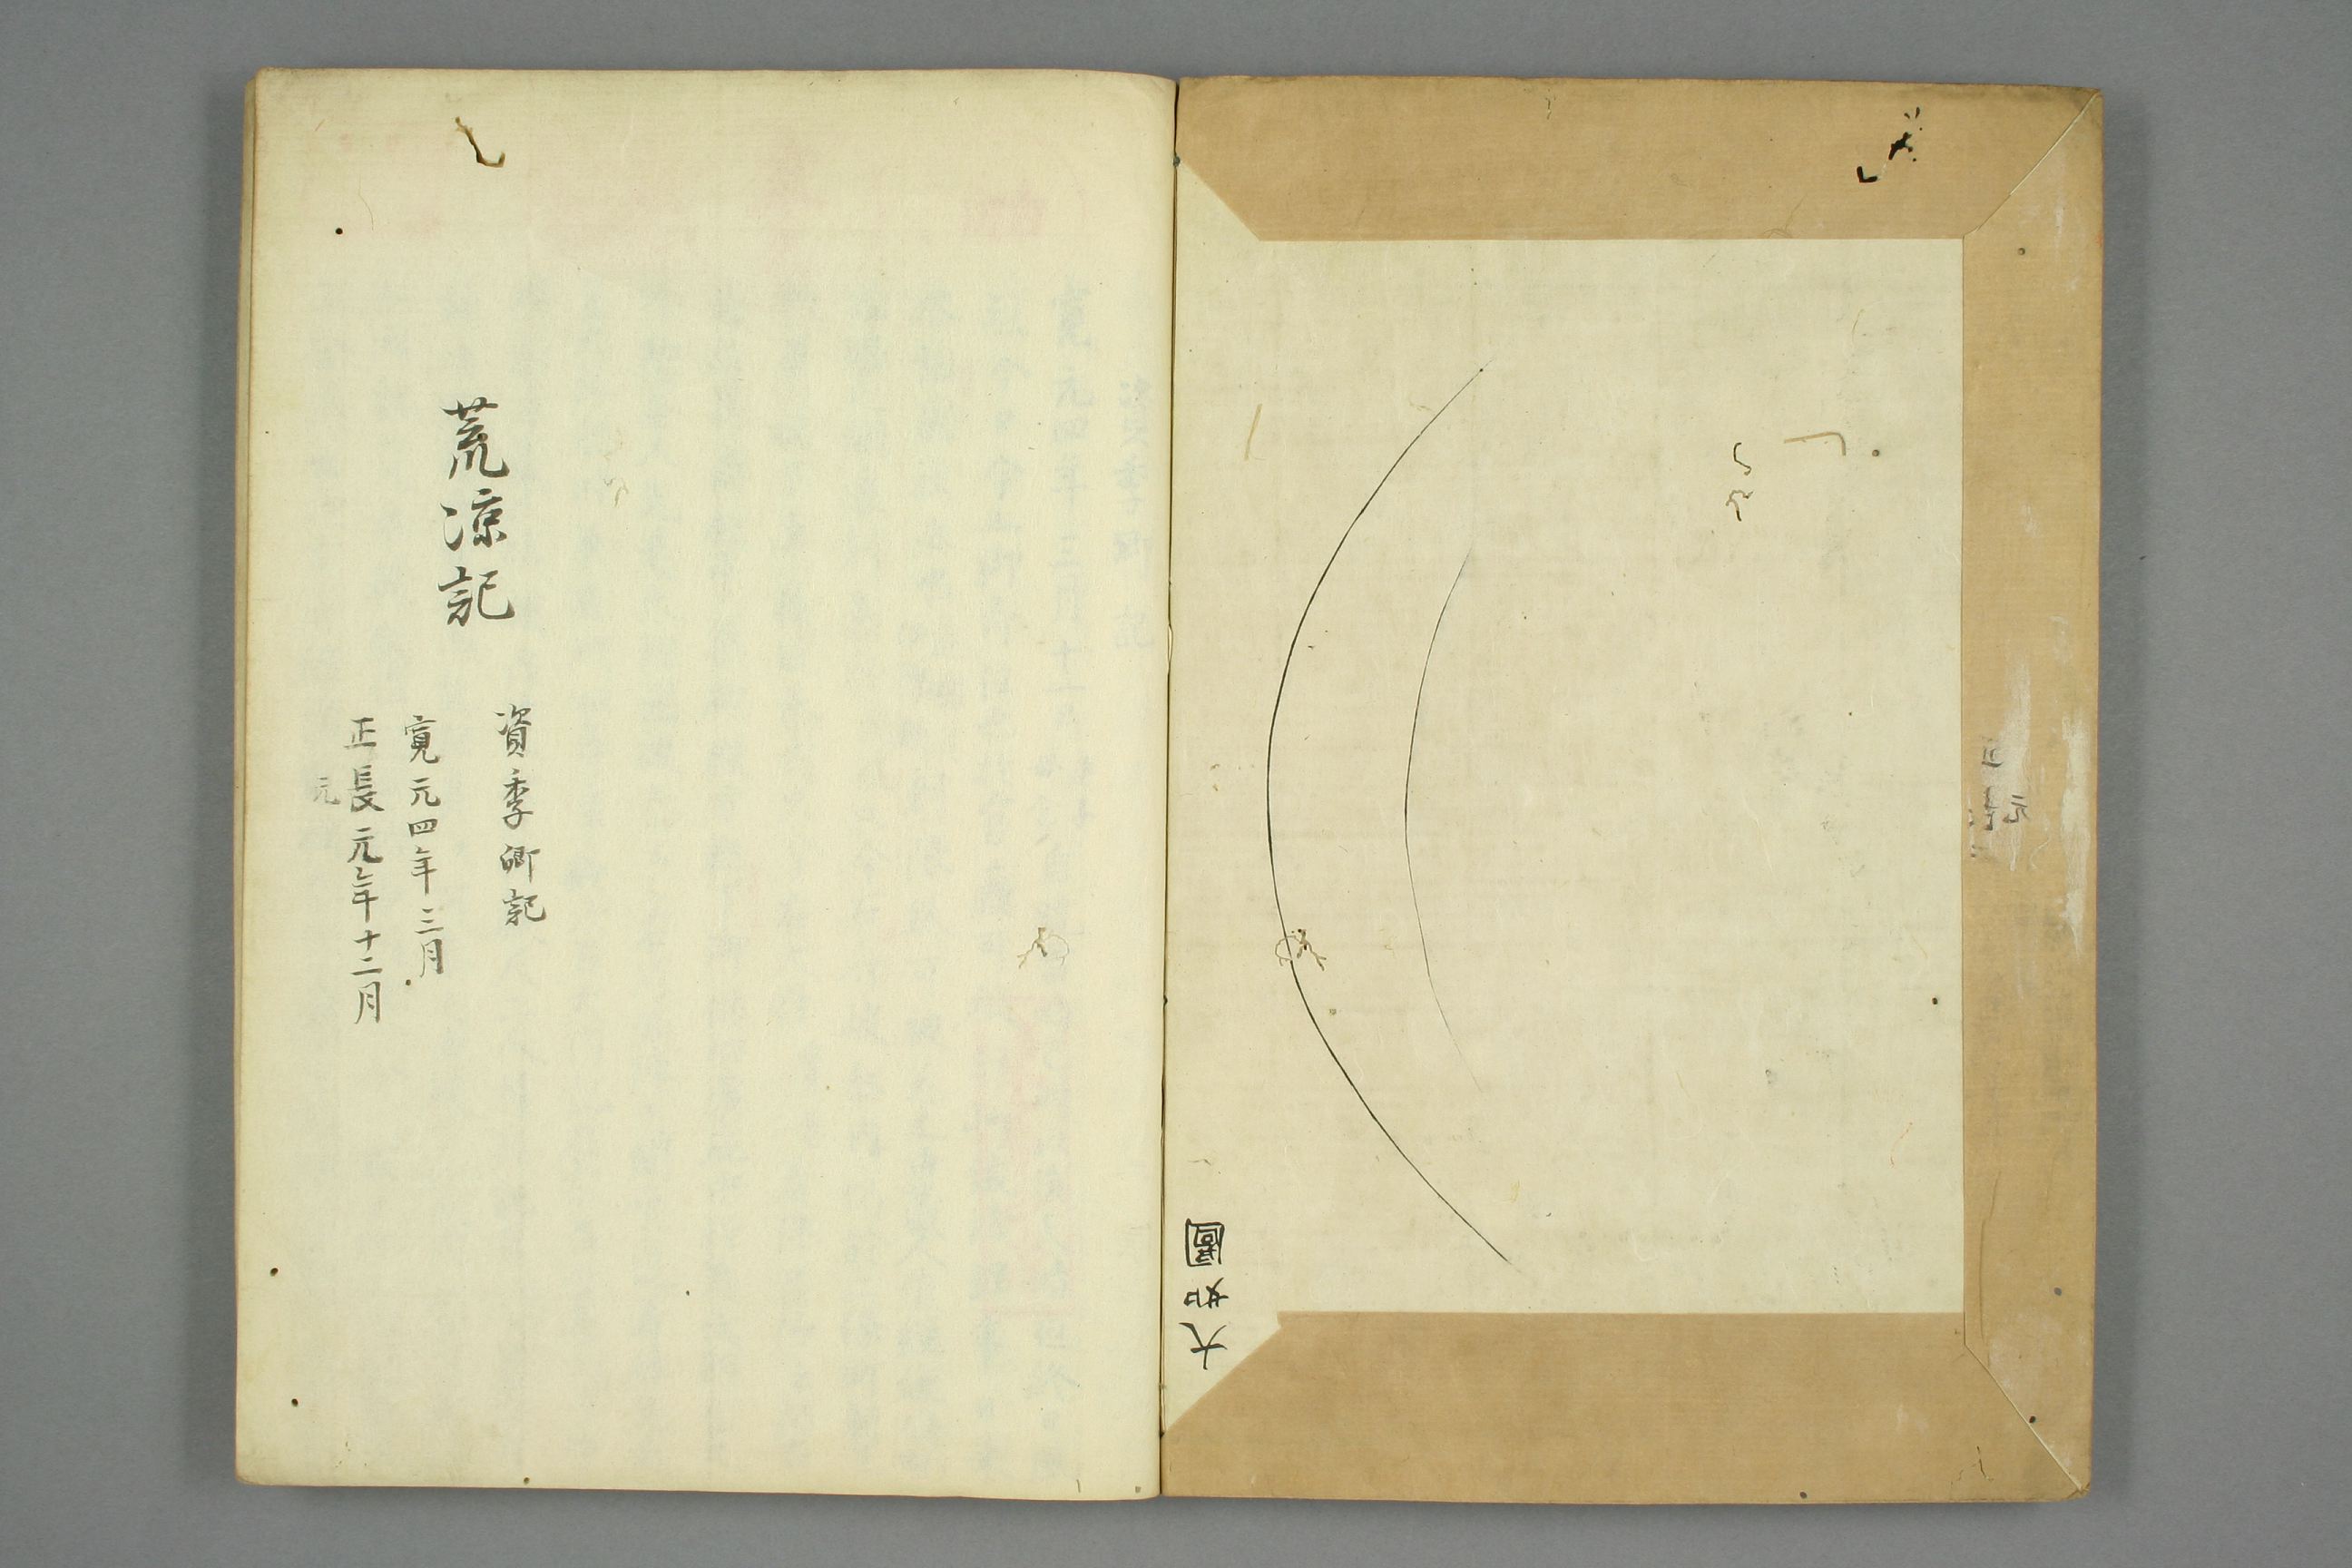 大如圖
荒涼記
資季卿記
寛元四年三月
正長元年十二月
元